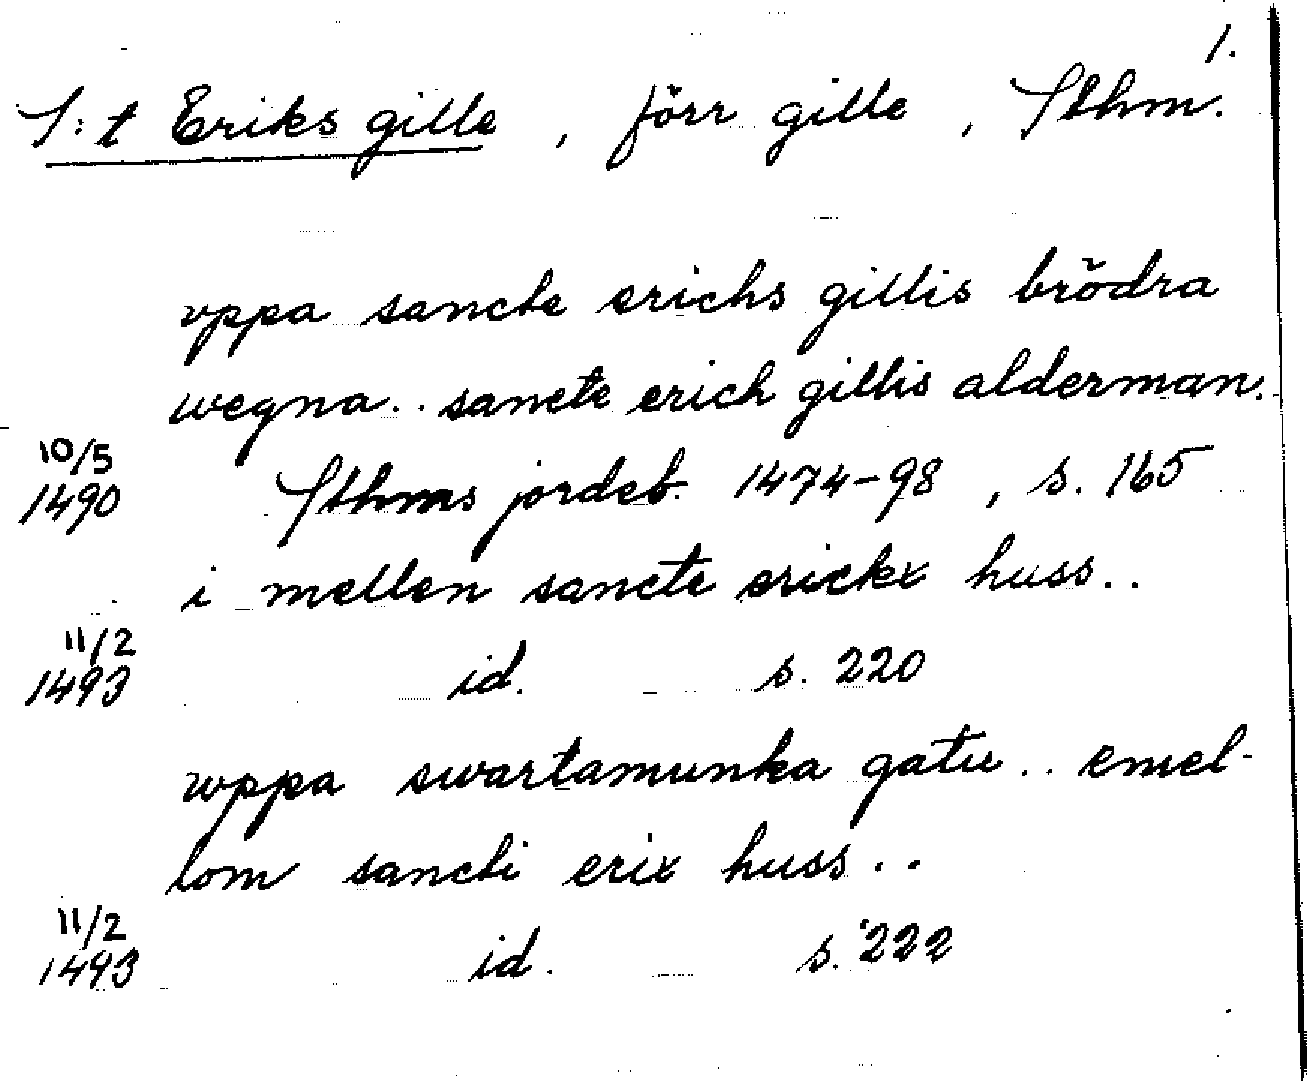 1.
S:t Eriks gille, förr gille, Sthm.
vppa sancte erichs gillis brödra
wegna.. sancte erich gillis alderman.
10/5
1490 Sthms jordeb. 1474-98, s. 165
i mellen sancte erickx huss..
11/2
1493 id. s. 220
wppa swartamunka gatu.. emel-
lom sancti erix huss..
11/2
1493 id. s. 222